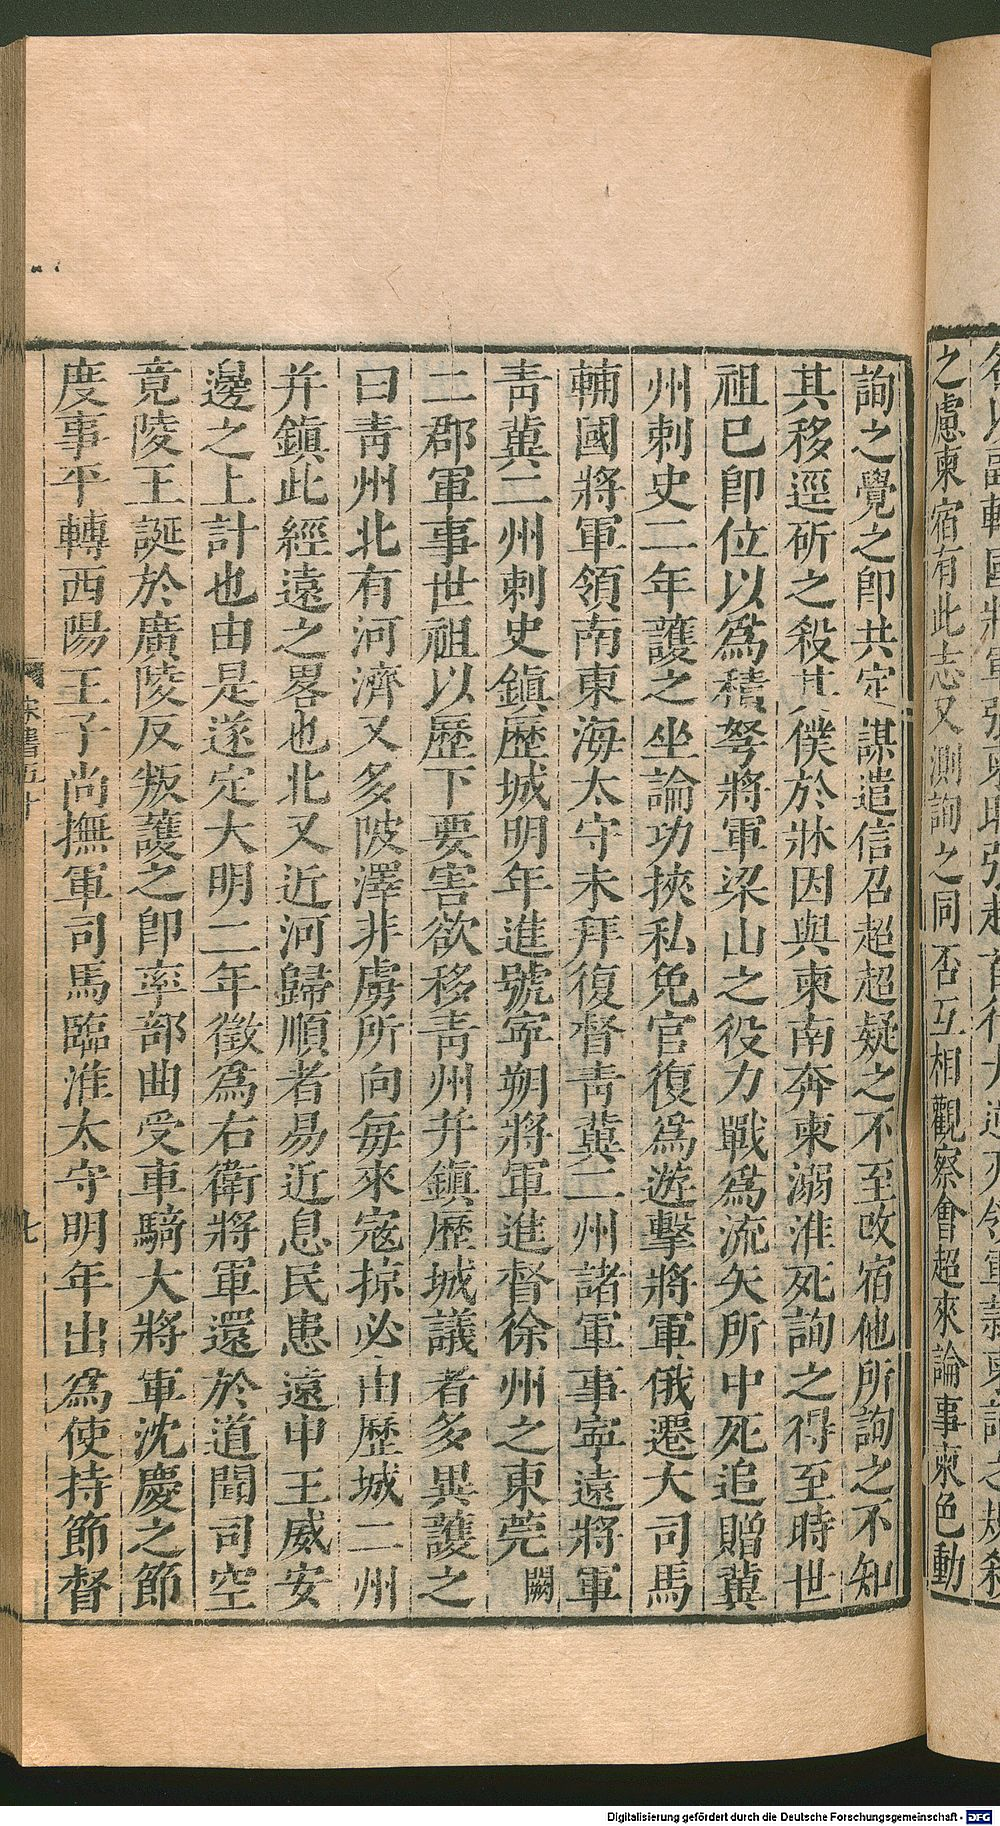 之慮柬宿有此志又測詢之同否互相觀察會超來論事柬色動
詢之覺之卽共定謀遣信召超超疑之不至改宿他所詢之不知
其移逕斫之殺其僕於牀因與柬南奔柬溺淮死詢之得至時世
祖已卽位以爲積弩將軍梁山之役力戰爲流矢所中死追贈冀
州刺史二年護之坐論功挾私免官復爲遊擊將軍俄遷大司馬
輔國將軍領南東海太守未拜復督青冀二州諸軍事寧遠將軍
青冀二州刺史鎭歷城明年進號寧朔將軍進督徐州之東莞闕
二郡軍事世祖以歷下要害欲移青州并鎭歷城議者多異護之
曰青州北有河濟又多陂澤非虜所向每來寇掠必由歷城二州
并鎭此經遠之畧也北又近河歸順者易近息民患遠申王威安
邊之上計也由是遂定大明二年徵爲右衛將軍還於道聞司空
竟陵王誕於廣陵反叛護之卽率部曲受車騎大將軍沈慶之節
度事平轉西陽王子尚撫軍司馬臨淮太守明年出爲使持節督
宋書五十
七
Digitalisierung gefördert durch die Deutsche Forschungsgemeinschaft - DFG